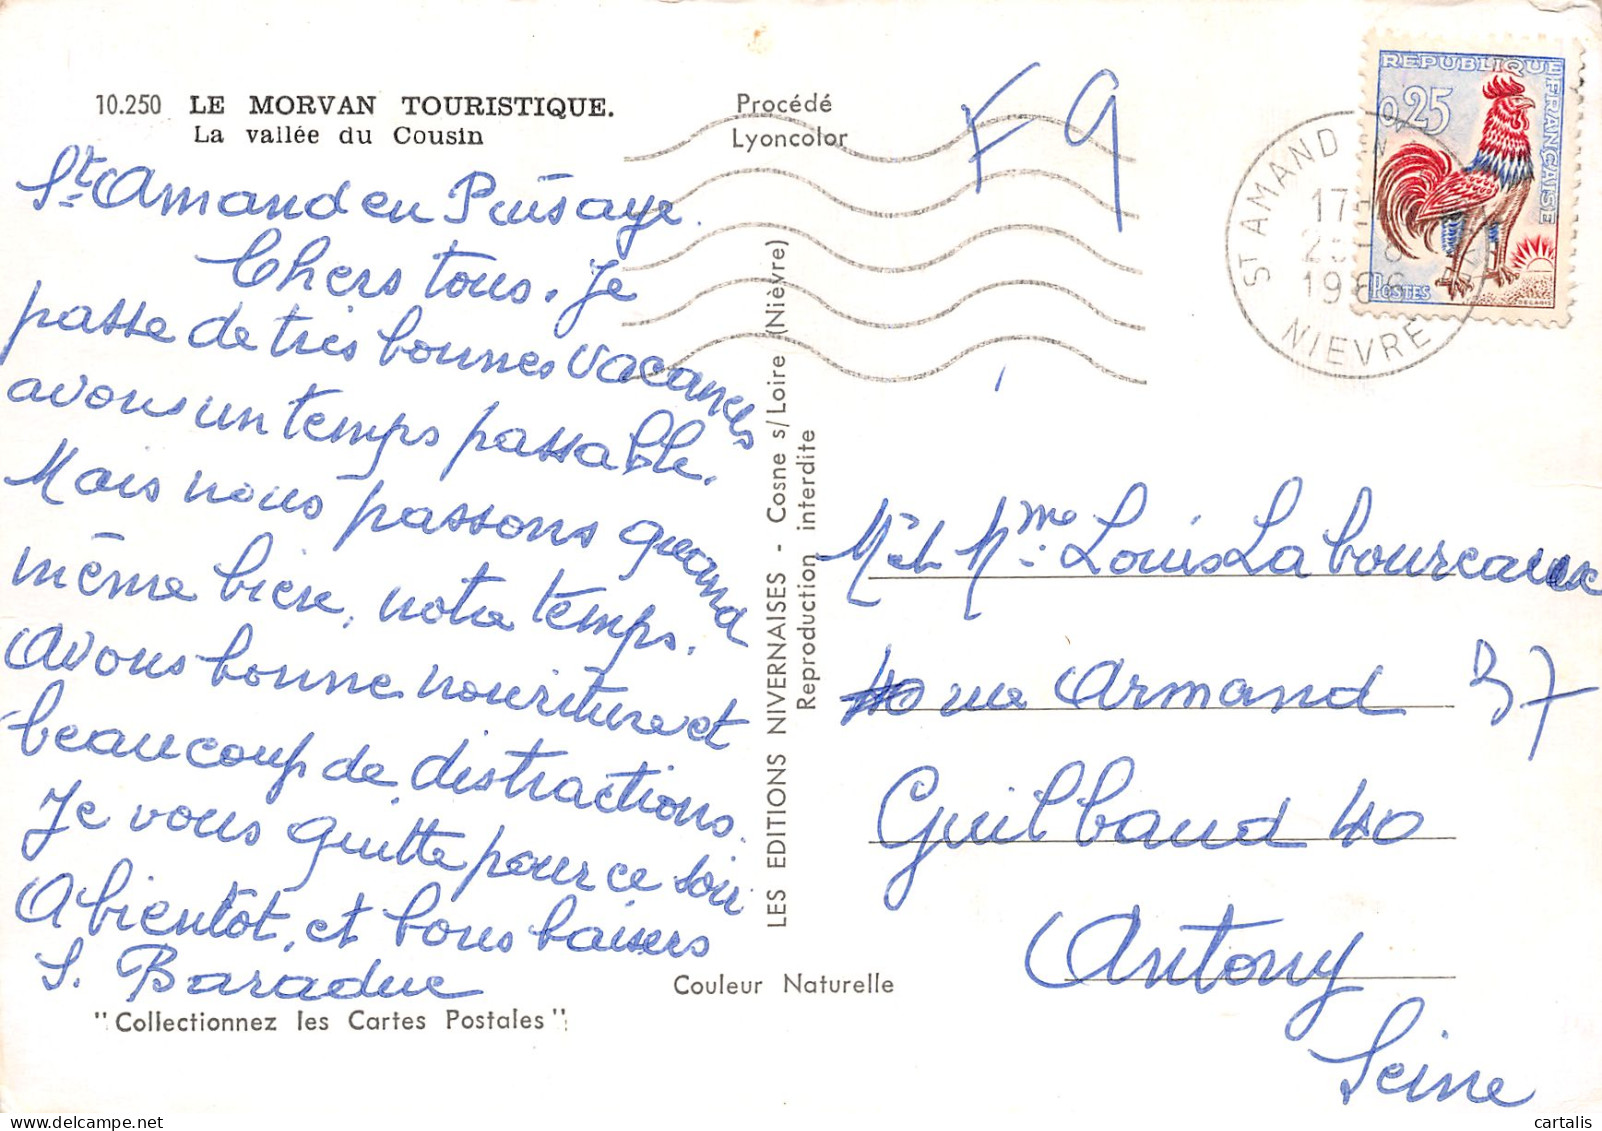 10.250 LE MORVAN TOURISTIQUE.
La vallée du Cousin
Procédé
Lyoncolor
F 9
REPUBLIQUE
FRANÇAISE
0,25
POSTES
DECARIS
ST AMAND EN
17H
25
1966
NIEVRE
St Amand en Puisaye.
Chers tous. Je
passe de très bonnes vacances
avons un temps passable.
Mais nous passons quand
même bien, notre temps.
Avons bonne nouriture et
beaucoup de distractions.
Je vous quitte pour ce soir
A bientôt, et bons baisers
S. Baraduc
"Collectionnez les Cartes Postales"
Couleur Naturelle
LES EDITIONS NIVERNAISES - Cosne s/Loire (Nièvre)
Reproduction interdite
Mr et Mme Louis Laboureaux
40 rue Armand 37
Guilbaud 40
Antony
Seine
cartalis